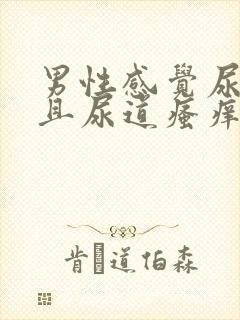 男性感覺尿
且尿道瘙癢
肯道伯森